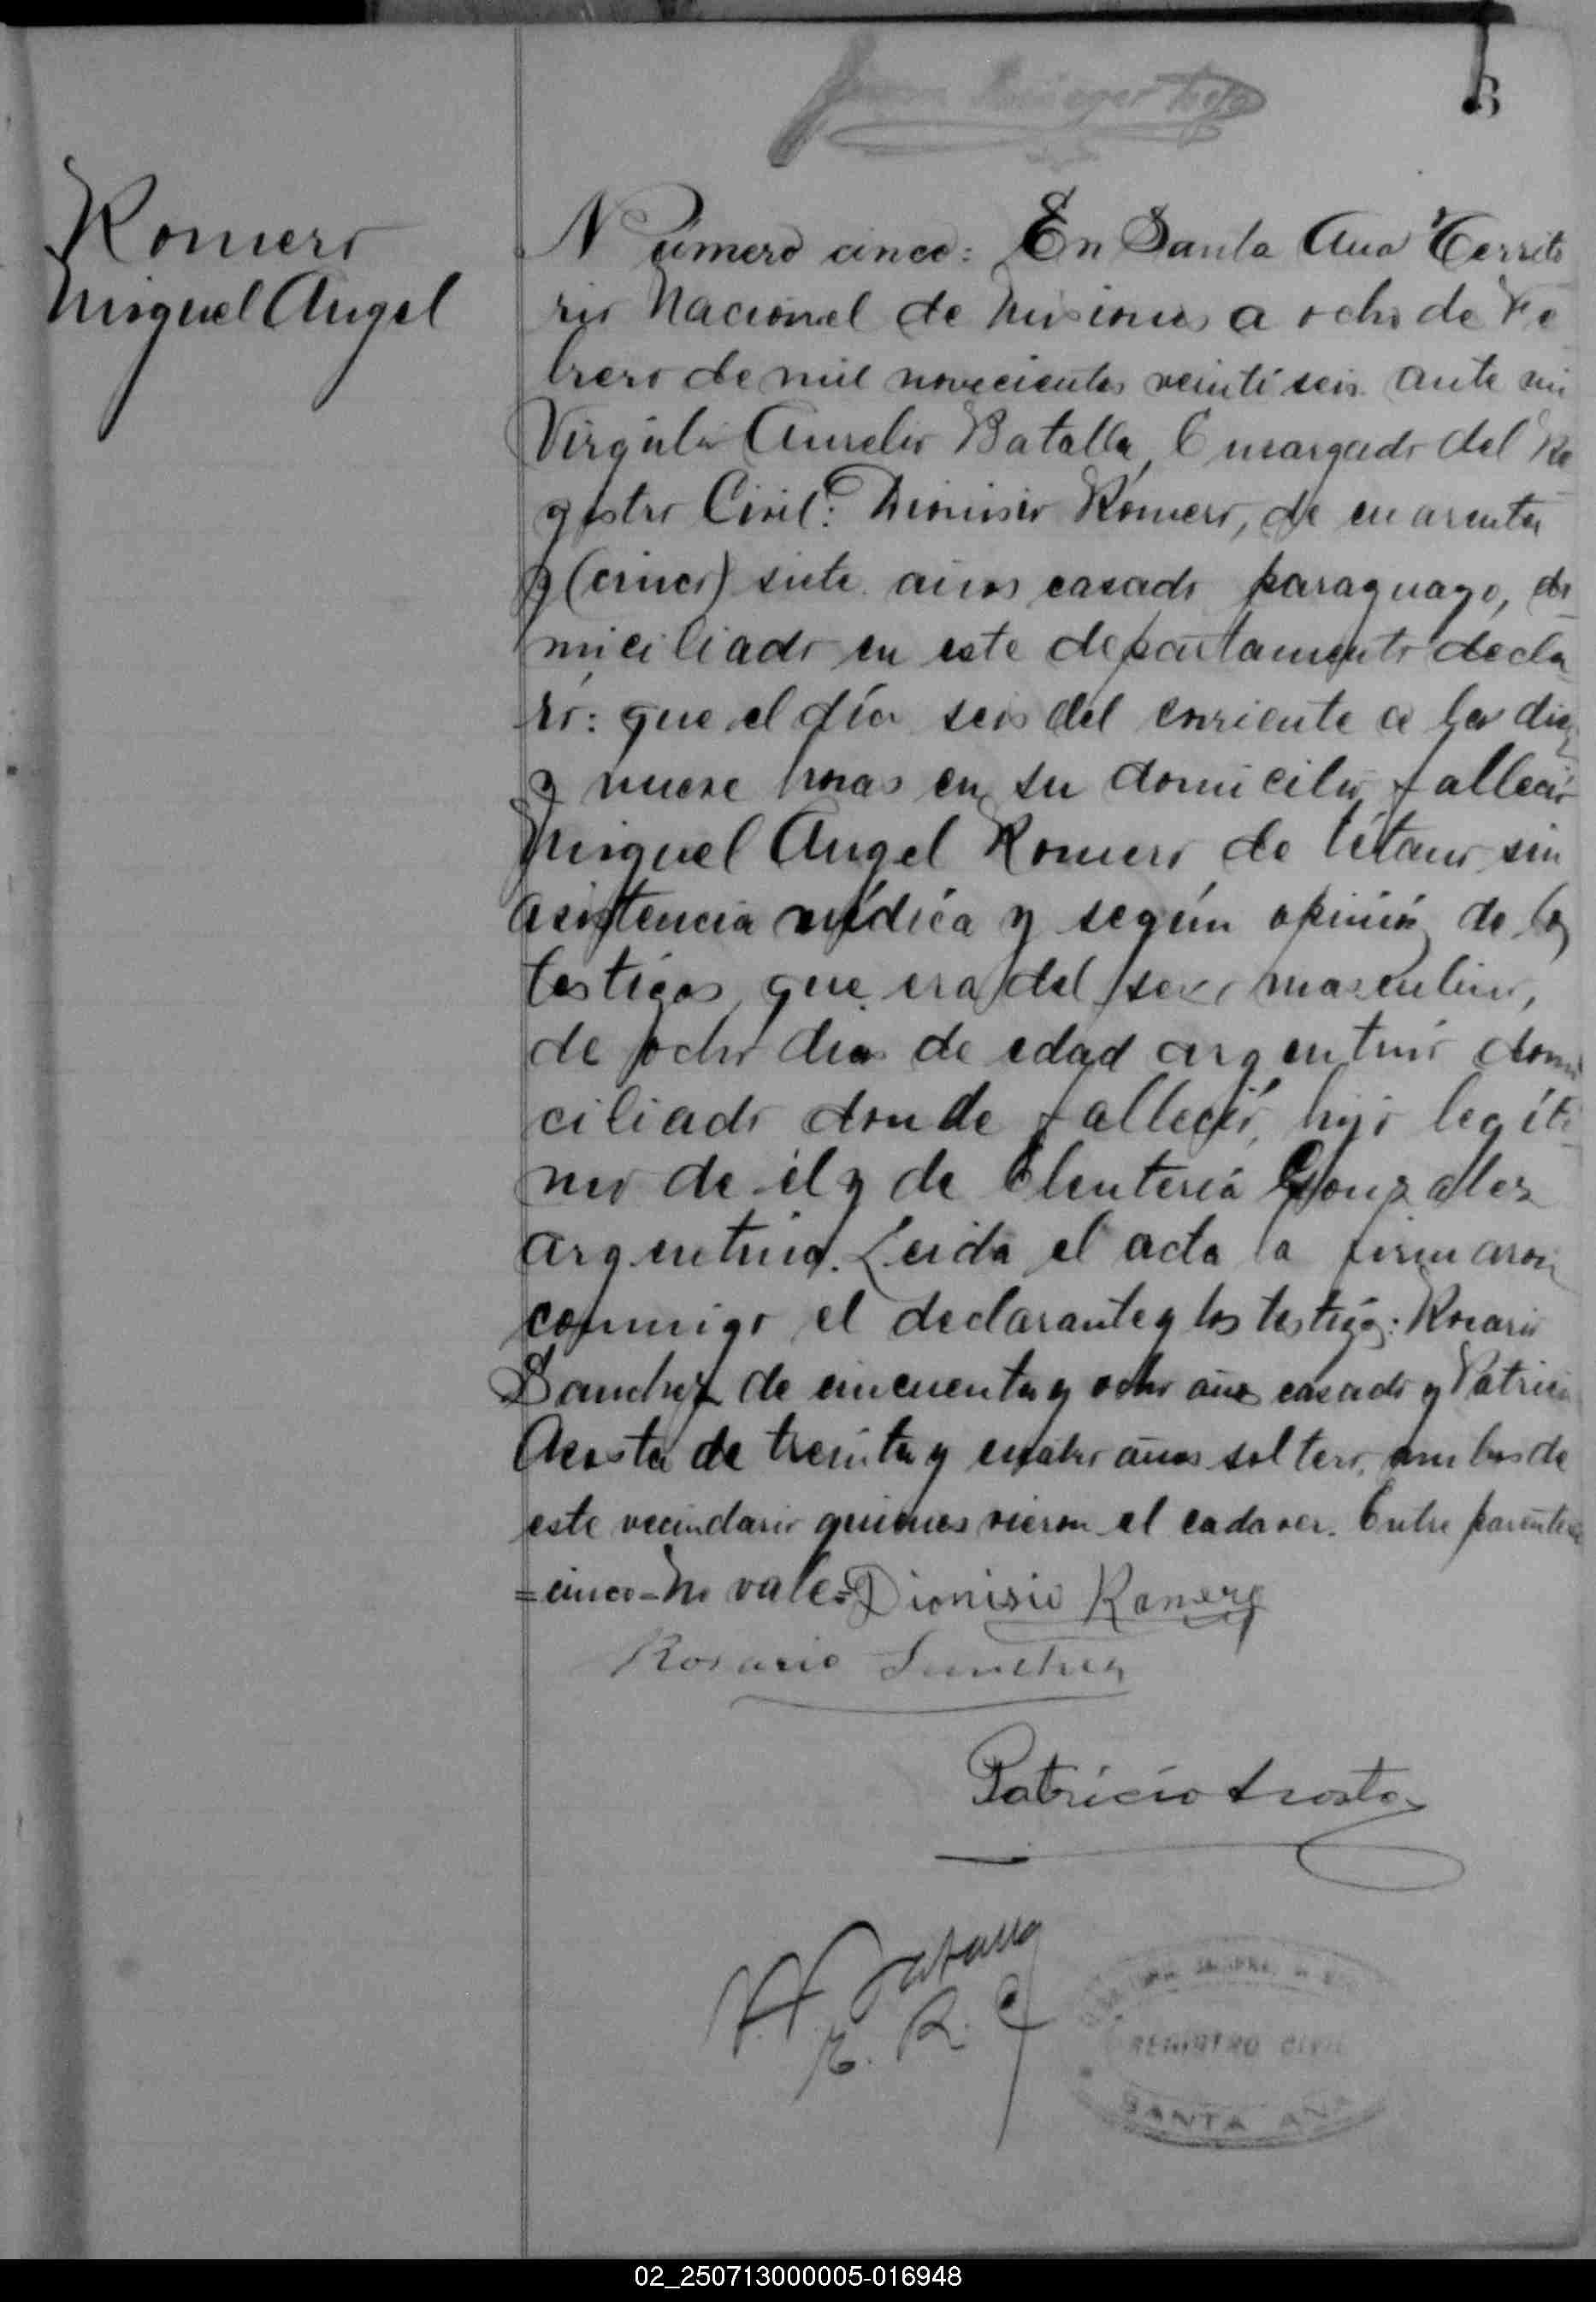 Romero
Miguel Angel
Número cinco: En Santa Ana Territo
rio Nacional de Misiones a ocho de Fe
brero de mil novecientos veintiseis ante mi
Virgilio Aurelio Batalla, Encargado del Re
gistro Civil: Dionisio Romero, de cuarenta
y (cinco) siete años casado paraguayo, do
miciliado en este departamento decla
ró: que el día seis del corriente a las diez
y nueve horas en su domicilio falleció
Miguel Angel Romero de tétano sin
asistencia médica y según opinión de los
testigos, que era del sexo masculino,
de ocho dias de edad argentino domi
ciliado donde falleció, hijo legíti
mo de él y de Eleuteria Gonzalez
argentina. Leida el acta la firmaron
conmigo el declarante y los testigos: Rosario
Sanchez de cincuenta y ocho años casado y Patricio
Acosta de treinta y cuatro años soltero, ambos de
este vecindario quienes vieron el cadaver. Entre parentesis
=cinco=No vale=Dionisio Romero
Rosario Sanchez
Patricio Acosta
V.A. Batalla
E. R. C
REGISTRO CIVIL
SANTA ANA
02_250713000005-016948